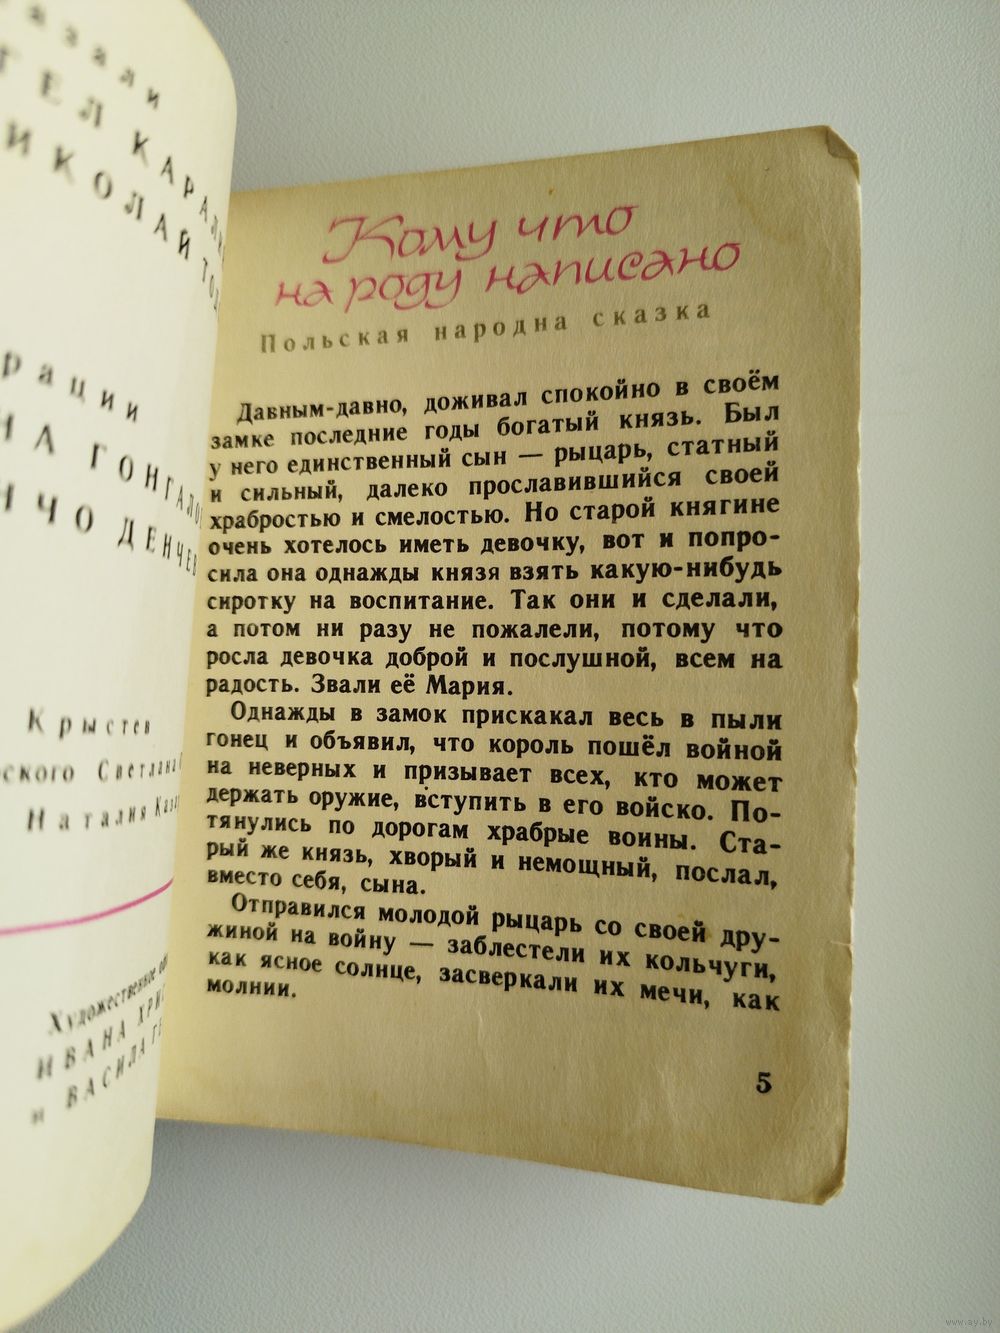 казали
КАРАЛ
НИКОЛАЙ ТОД
рации
НА ГОНГАЛО
НЧО ДЕНЧЕВ
Крыстев
ского Светлана
Наталия Каза
Художественное
ИВАНА ХРИС
и ВАСИЛА ГЕ
Кому что
на роду написано
Польская народна сказка
Давным-давно, доживал спокойно в своём
замке последние годы богатый князь. Был
у него единственный сын — рыцарь, статный
и сильный, далеко прославившийся своей
храбростью и смелостью. Но старой княгине
очень хотелось иметь девочку, вот и попро-
сила она однажды князя взять какую-нибудь
сиротку на воспитание. Так они и сделали,
а потом ни разу не пожалели, потому что
росла девочка доброй и послушной, всем на
радость. Звали её Мария.
Однажды в замок прискакал весь в пыли
гонец и объявил, что король пошёл войной
на неверных и призывает всех, кто может
держать оружие, вступить в его войско. По-
тянулись по дорогам храбрые воины. Ста-
рый же князь, хворый и немощный, послал,
вместо себя, сына.
Отправился молодой рыцарь со своей дру-
жиной на войну — заблестели их кольчуги,
как ясное солнце, засверкали их мечи, как
молнии.
5
www.ay.by